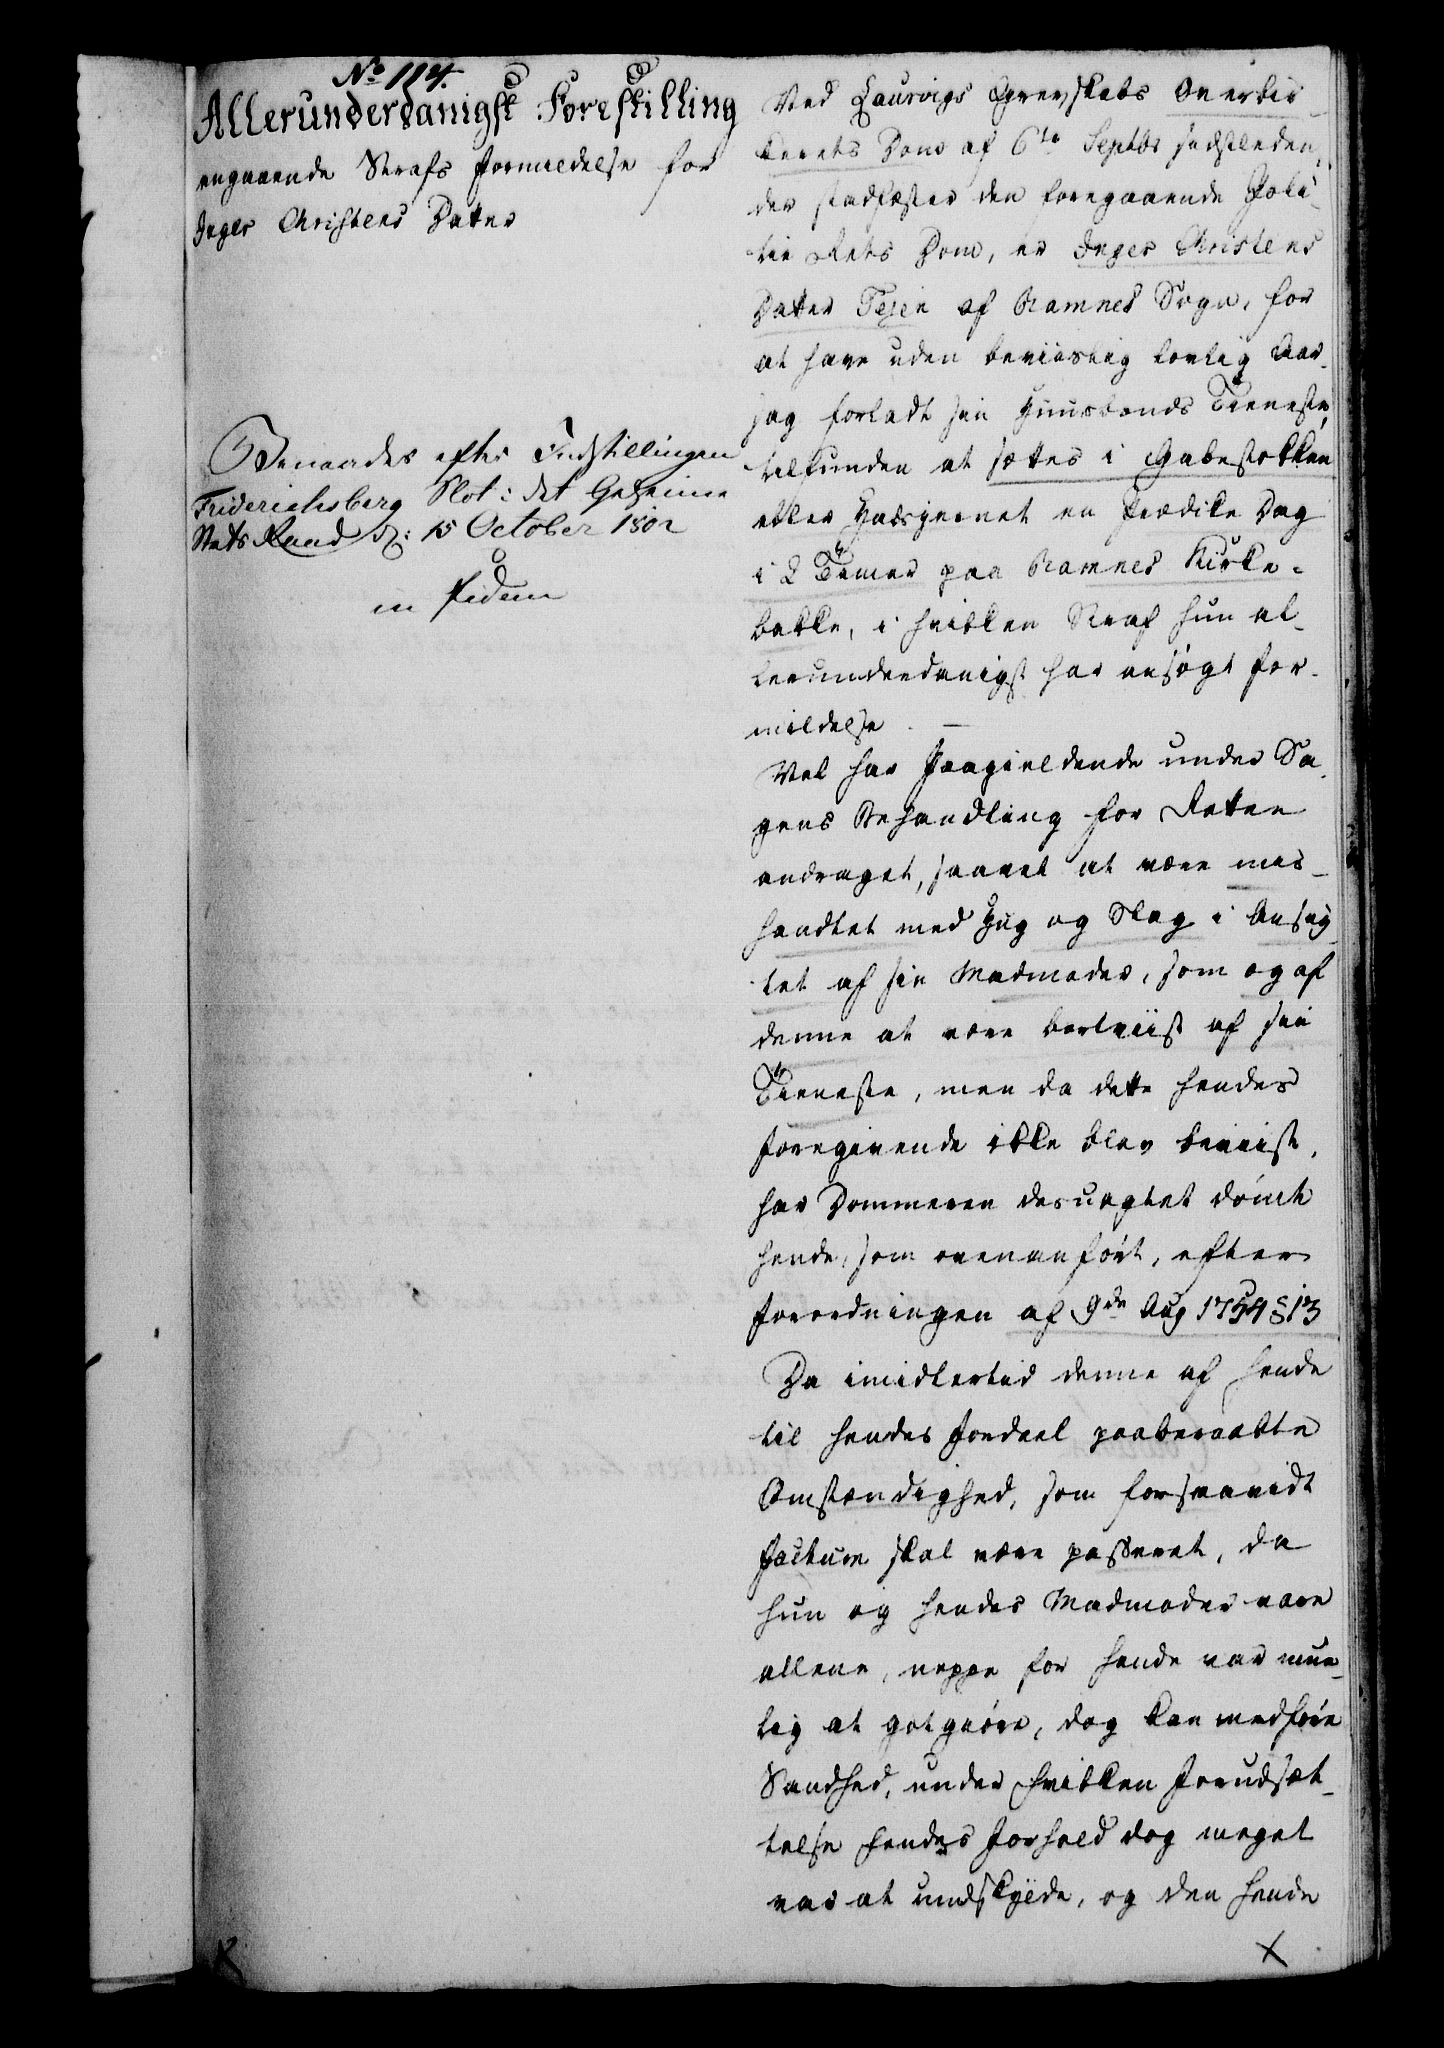 No 114.
Allerunderdanigst Forestilling
angaaende Strafs Formildelse for
Inger Christens Datter
Benaades efter Indstillingen
Friderichsberg Slot i det Geheime
Stats Raad d: 15 October 1802
in fidem
Ved Laurvigs Grevskabs Overbir-
kerets Dom af 6te Septbr sidstleden,
der stadfæster den foregaaende Poli-
tie Rets Dom, er Inger Christens
Datter Tejen af Ramnes Sogn, for
at have uden beviislig lovlig Aar-
sag forladt sin Huusbonds Tieneste,
tilfunden at sættes i Gabestokken
eller Halsjernet en Prædike Dag
i 2 Timer paa Ramnes Kirke-
bakke, i hvilken Straf hun al-
lerunderdanigst har ansøgt For-
mildelse. —
Vel har Paagieldende under Sa-
gens Behandling for Retten
andraget, saavel at være mis-
handlet med Hug og Slag i Ansig-
tet af sin Madmoder, som og af
denne at være bortviist af sin
Tieneste, men da dette hendes
Foregivende ikke blev beviist,
har Dommeren desuagtet dømt
hende, som ovenanført, efter
Forordningen af 9de Aug 1754 § 13
Da imidlertid denne af hende
til hendes Fordeel paaberaabte
Omstændighed, som forsaavidt
Factum skal være passeret, da
hun og hendes Madmoder vare
allene, neppe for hende var mue-
lig at gotgiøre, dog kan medføre
Sandhed, under hvilken Forudsæt-
telse hendes Forhold dog meget
var at undskylde, og den hende